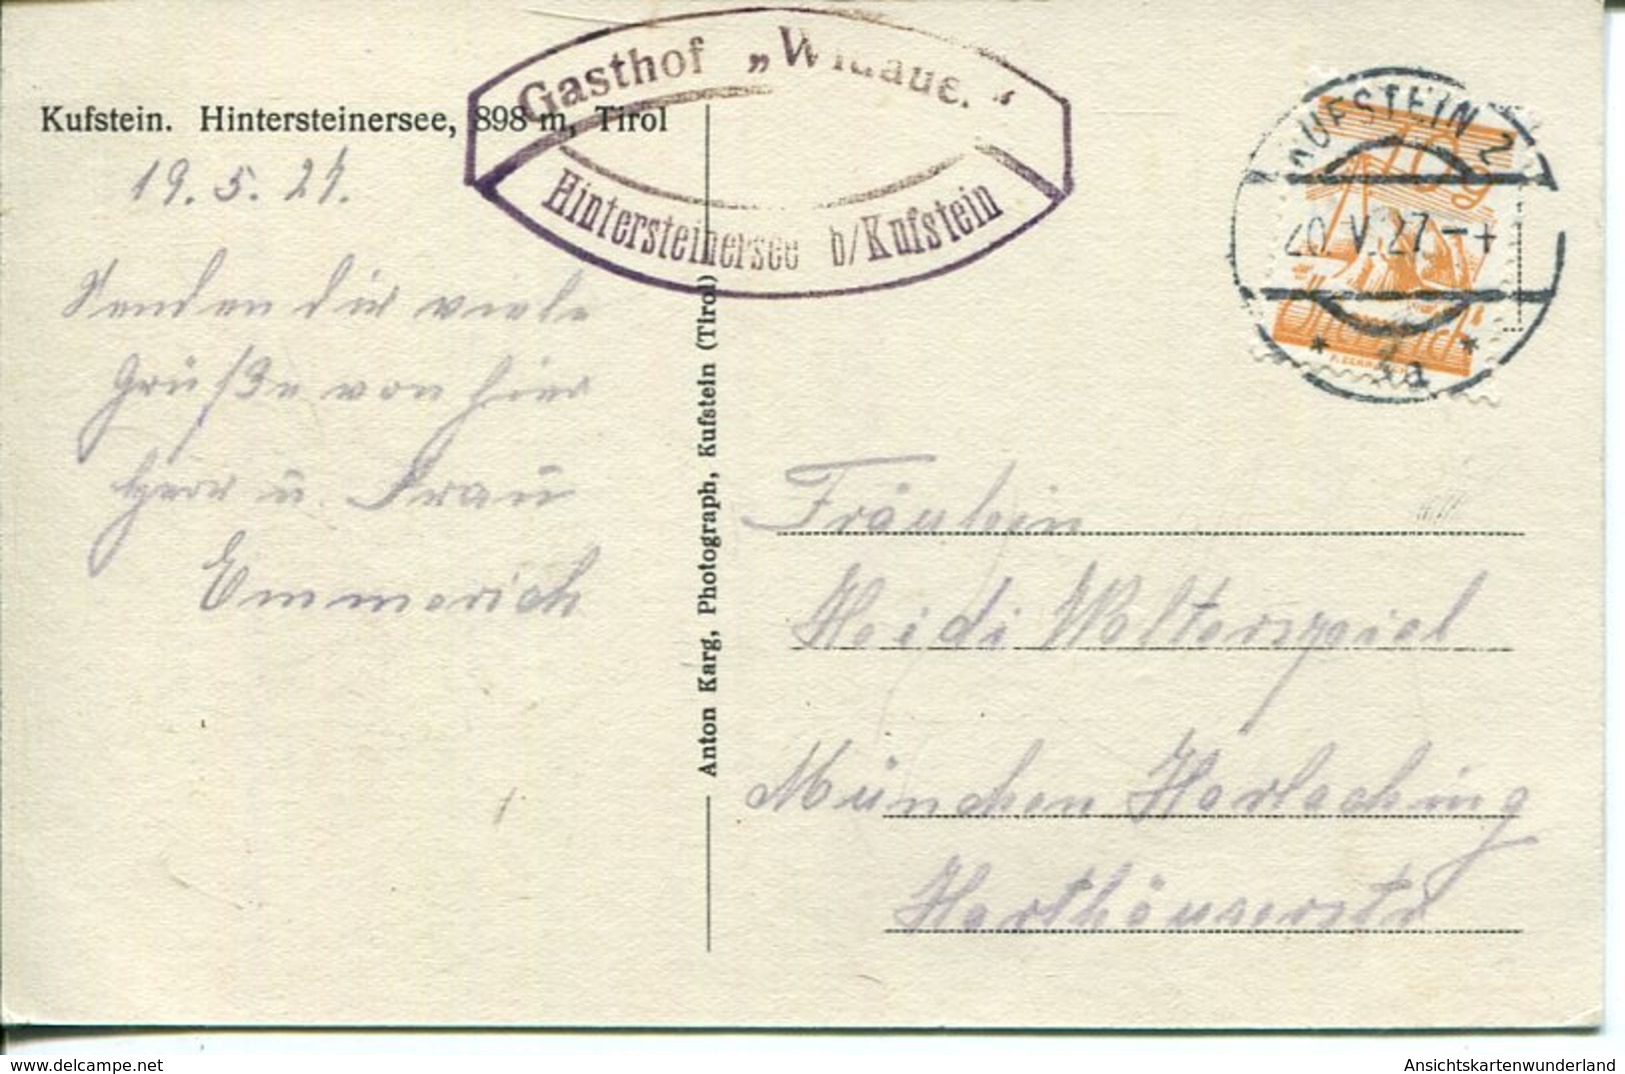 Kufstein. Hintersteinersee, 898 m, Tirol
Gasthof „Widauer“
Hintersteinersee b/Kufstein
19.5.27.
Senden dir viele
Grüße von hier
Herr u. Frau
Emmerich
Anton Karg, Photograph, Kufstein (Tirol)
KUFSTEIN 2
20.V.27
* 3a *
Fräulein
Heidi Wolterspiel
München Harlaching
Harthauserstr
delcampe.net
Ansichtskartenwunderland